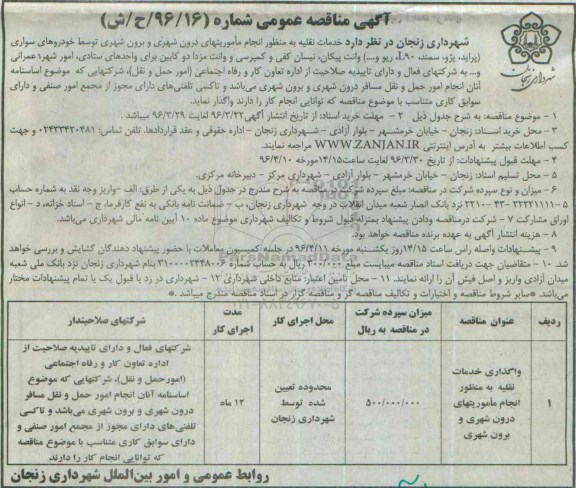 آگهی مناقصه عمومی شماره (۹۶/۱۶/ح/ش)
شهرداری زنجان در نظر دارد خدمات نقلیه به منظور انجام مأموریتهای درون شهری و برون شهری توسط خودروهای سواری
(پراید، پژو، سمند، L۹۰، ریو و....) وانت پیکان، نیسان کفی و کمپرسی و وانت مزدا دو کابین برای واحدهای ستادی، امور شهر؛ عمرانی
و... به شرکتهای فعال و دارای تاییدیه صلاحیت از اداره تعاون کار و رفاه اجتماعی (امور حمل و نقل)، شرکتهایی که موضوع اساسنامه
آنان انجام امور حمل و نقل مسافر درون شهری و برون شهری می‌باشد و تاکسی تلفنی‌های دارای مجوز از مجمع امور صنفی و دارای
سوابق کاری متناسب با موضوع مناقصه که توانایی انجام کار را دارند واگذار نماید.
۱ - موضوع مناقصه: به شرح جدول ذیل ۲ - مهلت خرید اسناد: از تاریخ انتشار آگهی ۹۶/۳/۲۲ لغایت ۹۶/۳/۲۹ میباشد.
۳ - محل خرید اسناد: زنجان - خیابان خرمشهر - بلوار آزادی - شهرداری زنجان - اداره حقوقی و عقد قراردادها. تلفن تماس: ۰۲۴۳۳۴۲۰۴۸۱ و جهت
کسب اطلاعات بیشتر به آدرس اینترنتی WWW.ZANJAN.IR مراجعه نمایند.
۴ - مهلت قبول پیشنهادات: از تاریخ ۹۶/۳/۳۰ لغایت ساعت ۱۴/۱۵ مورخه ۹۶/۴/۱۰
۵ - محل تسلیم اسناد: زنجان - خیابان خرمشهر - بلوار آزادی - شهرداری مرکز - دبیرخانه مرکزی.
۶ - میزان و نوع سپرده شرکت در مناقصه: مبلغ سپرده شرکت در مناقصه به شرح مندرج در جدول ذیل به یکی از طرق: الف - واریز وجه نقد به شماره حساب
۵-۲۲۲۲۱۱۱۱-۴۳-۲۲۱۰ نزد بانک انصار شعبه میدان انقلاب در وجه شهرداری زنجان، ب - ضمانت نامه بانکی به نفع کارفرما، ج - اسناد خزانه، د - انواع
اوراق مشارکت ۷ - شرکت درمناقصه ودادن پیشنهاد بمنزله قبول شروط و تکالیف شهرداری موضوع ماده ۱۰ آیین نامه مالی شهرداری می‌باشد.
۸ - هزینه انتشار آگهی به عهده برنده مناقصه خواهد بود.
۹ - پیشنهادات واصله راس ساعت ۱۴/۱۵ روز یکشنبه مورخه ۹۶/۴/۱۱ در جلسه کمیسیون معاملات با حضور پیشنهاد دهندگان گشایش و بررسی خواهد
شد. ۱۰ - متقاضیان جهت دریافت اسناد مناقصه میبایست مبلغ ۳۰۰/۰۰۰ ریال به حساب شماره ۳۱۰۰۰۰۲۴۴۸۰۰۶ بنام شهرداری زنجان نزد بانک ملی شعبه
میدان آزادی واریز و اصل فیش آن را ارائه نمایند. ۱۱ - محل تامین اعتبار: منابع داخلی شهرداری ۱۲ - شهرداری در رد یا قبول یک یا تمام پیشنهادات مختار
می‌باشد. *سایر شروط مناقصه و اختیارات و تکالیف مناقصه گر و مناقصه گزار در اسناد مناقصه مندرج میباشد.*
ردیف
عنوان مناقصه
میزان سپرده شرکت
در مناقصه به ریال
محل اجرای کار
مدت
اجرای کار
شرکتهای صلاحیتدار
۱
واگذاری خدمات
نقلیه به منظور
انجام ماموریتهای
درون شهری و
برون شهری
۵۰۰/۰۰۰/۰۰۰
محدوده تعیین
شده توسط
شهرداری زنجان
۱۲ ماه
شرکتهای فعال و دارای تاییدیه صلاحیت از
اداره تعاون کار و رفاه اجتماعی
(امورحمل و نقل)، شرکتهایی که موضوع
اساسنامه آنان انجام امور حمل و نقل مسافر
درون شهری و برون شهری می‌باشد و تاکسی
تلفنی‌های دارای مجوز از مجمع امور صنفی و
دارای سوابق کاری متناسب با موضوع مناقصه
که توانایی انجام کار را دارند
روابط عمومی و امور بین‌الملل شهرداری زنجان